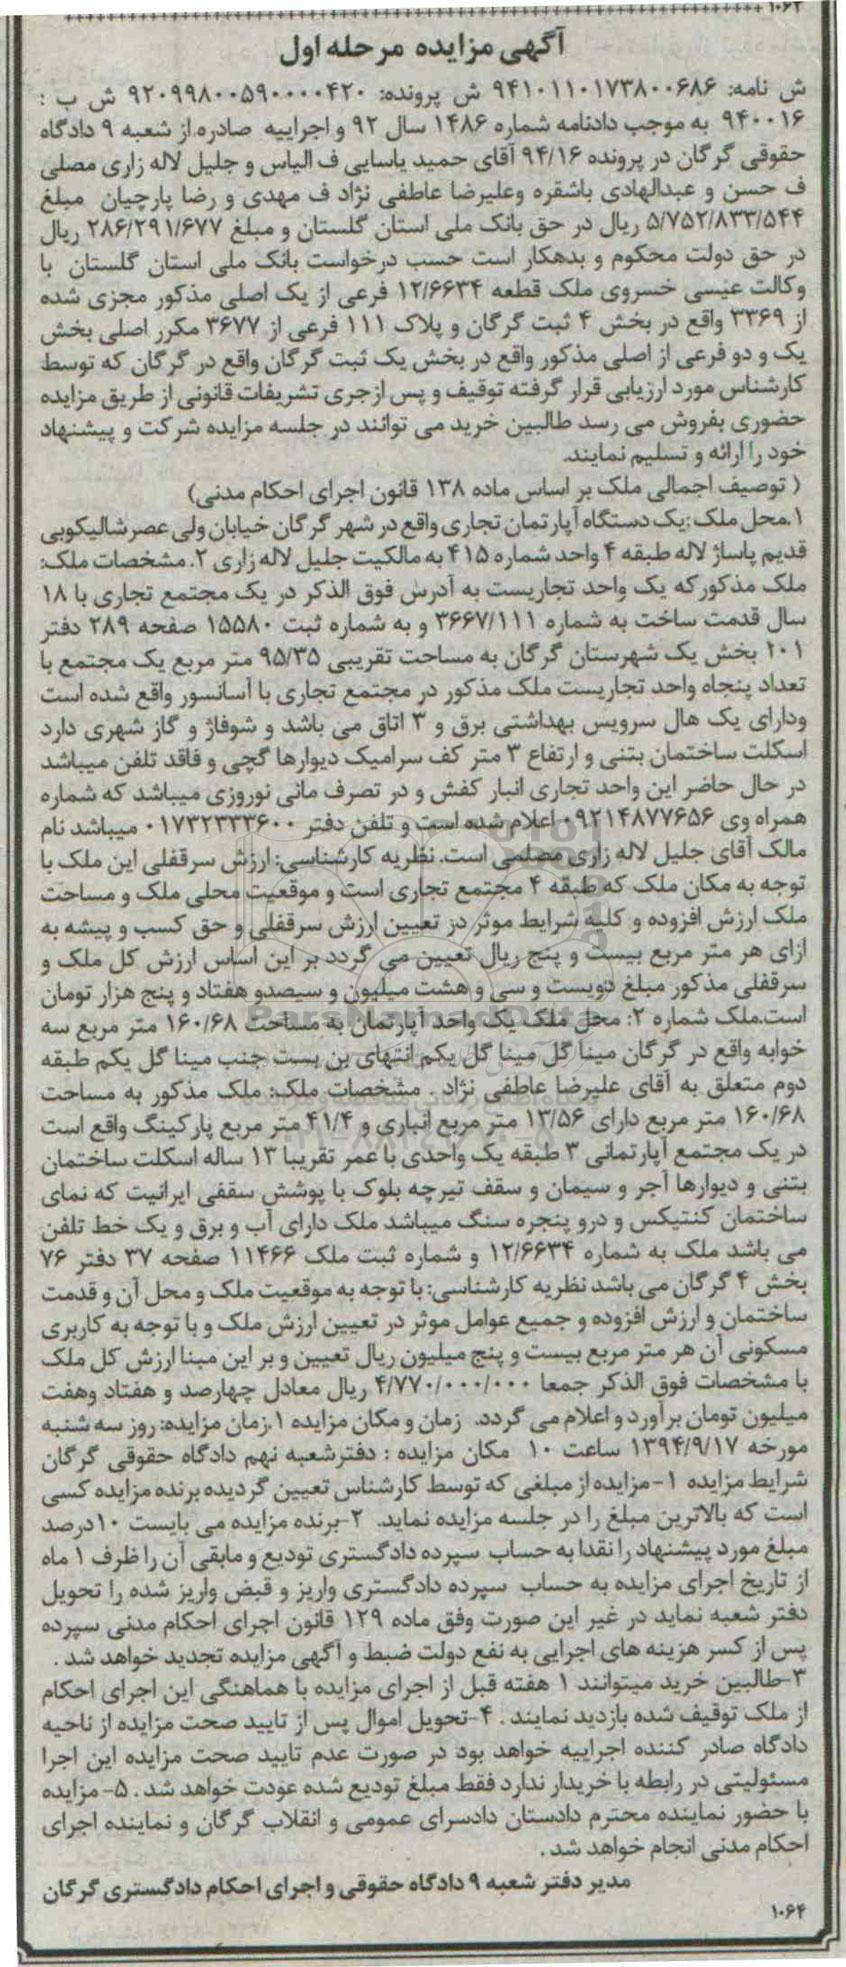 ۱۰۶۲
آگهی مزایده مرحله اول
ش نامه: ۹۴۱۰۱۱۰۱۷۳۸۰۰۶۸۶ ش پرونده: ۹۲۰۹۹۸۰۰۵۹۰۰۰۰۴۲۰ ش ب :
۹۴۰۰۱۶ به موجب دادنامه شماره ۱۴۸۶ سال ۹۲ و اجراییه صادره از شعبه ۹ دادگاه
حقوقی گرگان در پرونده ۹۴/۱۶ آقای حمید یاسایی ف الیاس و جلیل لاله زاری مصلی
ف حسن و عبدالهادی باشقره وعلیرضا عاطفی نژاد ف مهدی و رضا پارچیان مبلغ
۵/۷۵۲/۸۳۳/۵۴۴ ریال در حق بانک ملی استان گلستان و مبلغ ۲۸۶/۲۹۱/۶۷۷ ریال
در حق دولت محکوم و بدهکار است حسب درخواست بانک ملی استان گلستان با
وکالت عیسی خسروی ملک قطعه ۱۲/۶۶۳۴ فرعی از یک اصلی مذکور مجزی شده
از ۳۳۶۹ واقع در بخش ۴ ثبت گرگان و پلاک ۱۱۱ فرعی از ۳۶۷۷ مکرر اصلی بخش
یک و دو فرعی از اصلی مذکور واقع در بخش یک ثبت گرگان واقع در گرگان که توسط
کارشناس مورد ارزیابی قرار گرفته توقیف و پس ازجری تشریفات قانونی از طریق مزایده
حضوری بفروش می رسد طالبین خرید می توانند در جلسه مزایده شرکت و پیشنهاد
خود را ارائه و تسلیم نمایند.
( توصیف اجمالی ملک بر اساس ماده ۱۳۸ قانون اجرای احکام مدنی)
۱.محل ملک :یک دستگاه آپارتمان تجاری واقع در شهر گرگان خیابان ولی عصر شالیکوبی
قدیم پاساژ لاله طبقه ۴ واحد شماره ۴۱۵ به مالکیت جلیل لاله زاری ۲. مشخصات ملک:
ملک مذکورکه یک واحد تجاریست به آدرس فوق الذکر در یک مجتمع تجاری با ۱۸
سال قدمت ساخت به شماره ۳۶۶۷/۱۱۱ و به شماره ثبت ۱۵۵۸۰ صفحه ۲۸۹ دفتر
۱۰۱ بخش یک شهرستان گرگان به مساحت تقریبی ۹۵/۳۵ متر مربع یک مجتمع با
تعداد پنجاه واحد تجاریست ملک مذکور در مجتمع تجاری با آسانسور واقع شده است
ودارای یک هال سرویس بهداشتی برق و ۳ اتاق می باشد و شوفاژ و گاز شهری دارد
اسکلت ساختمان بتنی و ارتفاع ۳ متر کف سرامیک دیوارها گچی و فاقد تلفن میباشد
در حال حاضر این واحد تجاری انبار کفش و در تصرف مانی نوروزی میباشد که شماره
همراه وی ۰۹۲۱۴۸۷۷۶۵۶ اعلام شده است و تلفن دفتر ۰۱۷۳۲۳۳۳۶۰۰ میباشد نام
مالک آقای جلیل لاله زاری مصلمی است. نظریه کارشناسی: ارزش سرقفلی این ملک با
توجه به مکان ملک که طبقه ۴ مجتمع تجاری است و موقعیت محلی ملک و مساحت
ملک ارزش افزوده و کلیه شرایط موثر در تعیین ارزش سرقفلی و حق کسب و پیشه به
ازای هر متر مربع بیست و پنج ریال تعیین می گردد بر این اساس ارزش کل ملک و
سرقفلی مذکور مبلغ دویست و سی و هشت میلیون و سیصدو هفتاد و پنج هزار تومان
است.ملک شماره ۲: محل ملک یک واحد آپارتمان به مساحت ۱۶۰/۶۸ متر مربع سه
خوابه واقع در گرگان مینا گل مینا گل یکم انتهای بن بست جنب مینا گل یکم طبقه
دوم متعلق به آقای علیرضا عاطفی نژاد . مشخصات ملک: ملک مذکور به مساحت
۱۶۰/۶۸ متر مربع دارای ۱۳/۵۶ متر مربع انباری و ۴۱/۴ متر مربع پارکینگ واقع است
در یک مجتمع آپارتمانی ۳ طبقه یک واحدی با عمر تقریبا ۱۳ ساله اسکلت ساختمان
بتنی و دیوارها آجر و سیمان و سقف تیرچه بلوک با پوشش سقفی ایرانیت که نمای
ساختمان کنتیکس و درو پنجره سنگ میباشد ملک دارای آب و برق و یک خط تلفن
می باشد ملک به شماره ۱۲/۶۶۳۴ و شماره ثبت ملک ۱۱۴۶۶ صفحه ۳۷ دفتر ۷۶
بخش ۴ گرگان می باشد نظریه کارشناسی: با توجه به موقعیت ملک و محل آن و قدمت
ساختمان و ارزش افزوده و جمیع عوامل موثر در تعیین ارزش ملک و با توجه به کاربری
مسکونی آن هر متر مربع بیست و پنج میلیون ریال تعیین و بر این مبنا ارزش کل ملک
با مشخصات فوق الذکر جمعا ۴/۷۷۰/۰۰۰/۰۰۰ ریال معادل چهارصد و هفتاد وهفت
میلیون تومان برآورد و اعلام می گردد. زمان و مکان مزایده ۱.زمان مزایده: روز سه شنبه
مورخه ۱۳۹۴/۹/۱۷ ساعت ۱۰ مکان مزایده : دفترشعبه نهم دادگاه حقوقی گرگان
شرایط مزایده ۱-مزایده از مبلغی که توسط کارشناس تعیین گردیده برنده مزایده کسی
است که بالاترین مبلغ را در جلسه مزایده نماید. ۲-برنده مزایده می بایست ۱۰درصد
مبلغ مورد پیشنهاد را نقدا به حساب سپرده دادگستری تودیع و مابقی آن را ظرف ۱ ماه
از تاریخ اجرای مزایده به حساب سپرده دادگستری واریز و قبض واریز شده را تحویل
دفتر شعبه نماید در غیر این صورت وفق ماده ۱۲۹ قانون اجرای احکام مدنی سپرده
پس از کسر هزینه های اجرایی به نفع دولت ضبط و آگهی مزایده تجدید خواهد شد .
۳-طالبین خرید میتوانند ۱ هفته قبل از اجرای مزایده با هماهنگی این اجرای احکام
از ملک توقیف شده بازدید نمایند . ۴-تحویل اموال پس از تایید صحت مزایده از ناحیه
دادگاه صادر کننده اجراییه خواهد بود در صورت عدم تایید صحت مزایده این اجرا
مسئولیتی در رابطه با خریدار ندارد فقط مبلغ تودیع شده عودت خواهد شد . ۵- مزایده
با حضور نماینده محترم دادستان دادسرای عمومی و انقلاب گرگان و نماینده اجرای
احکام مدنی انجام خواهد شد .
مدیر دفتر شعبه ۹ دادگاه حقوقی و اجرای احکام دادگستری گرگان
۱۰۶۴
ParsNamadData